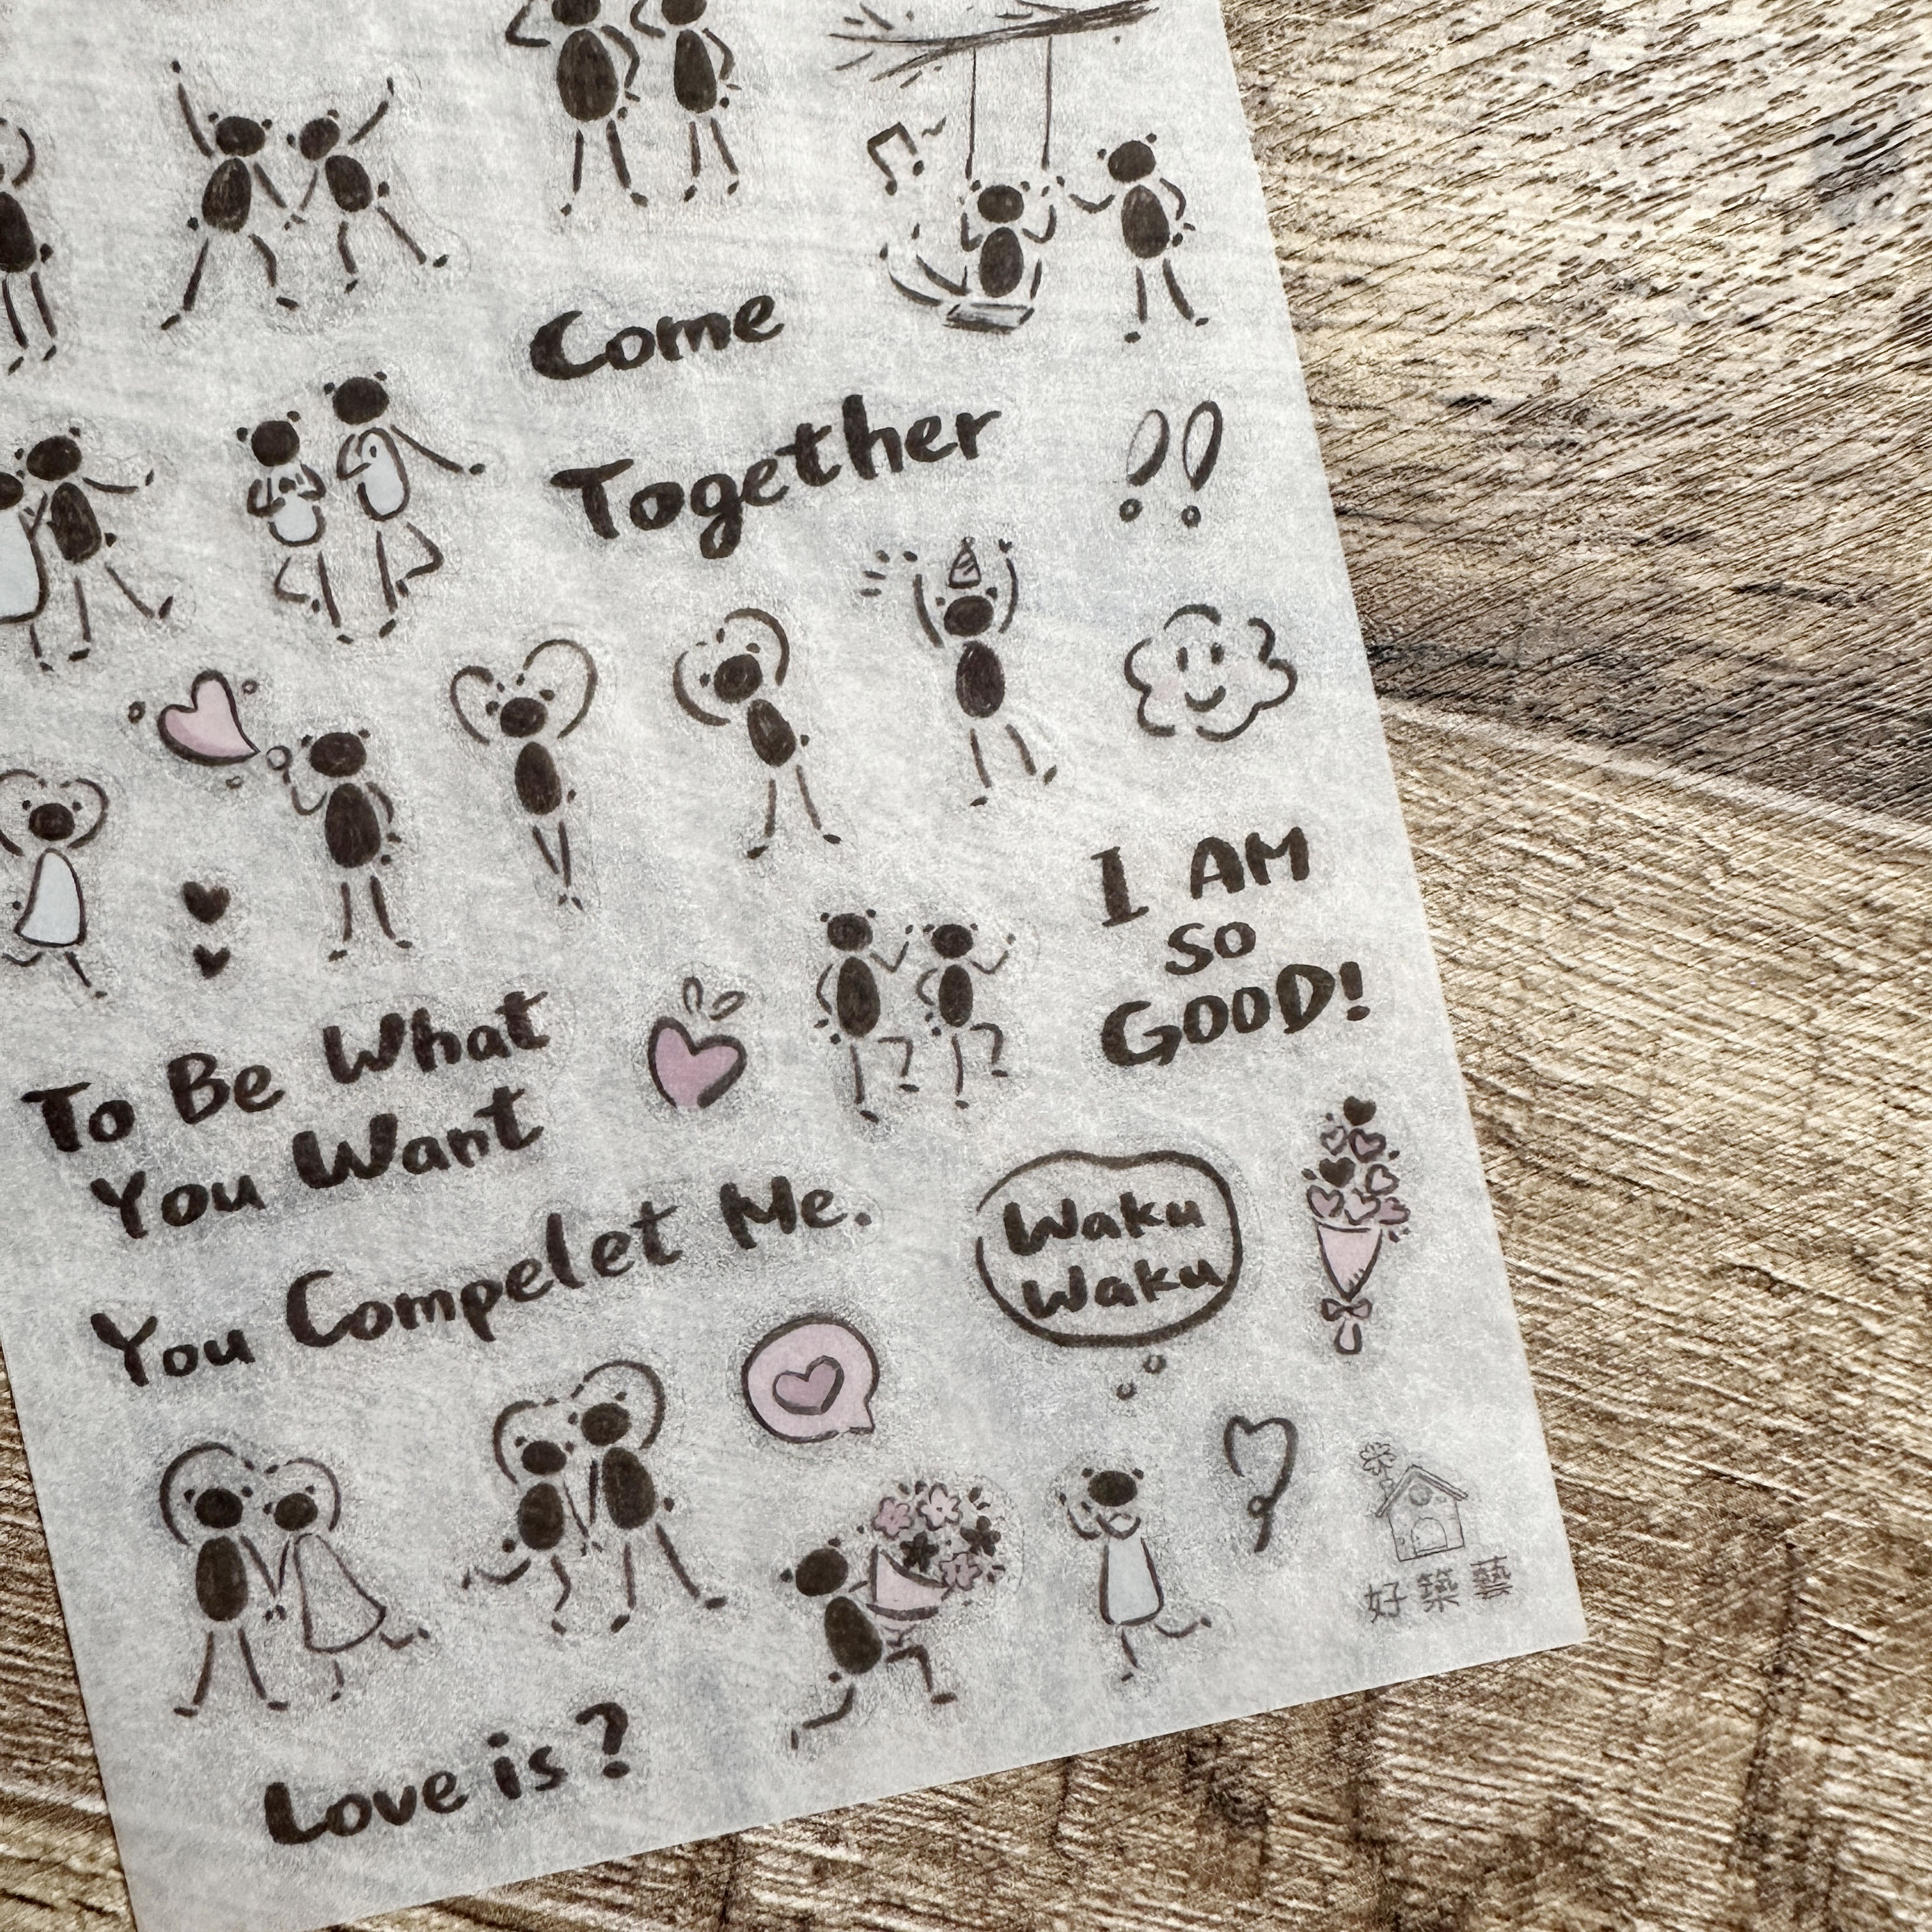 Come
Together
I AM
SO
GOOD!
To Be What
You Want
You Compelet Me.
Waku
Waku
好築藝
Love is?